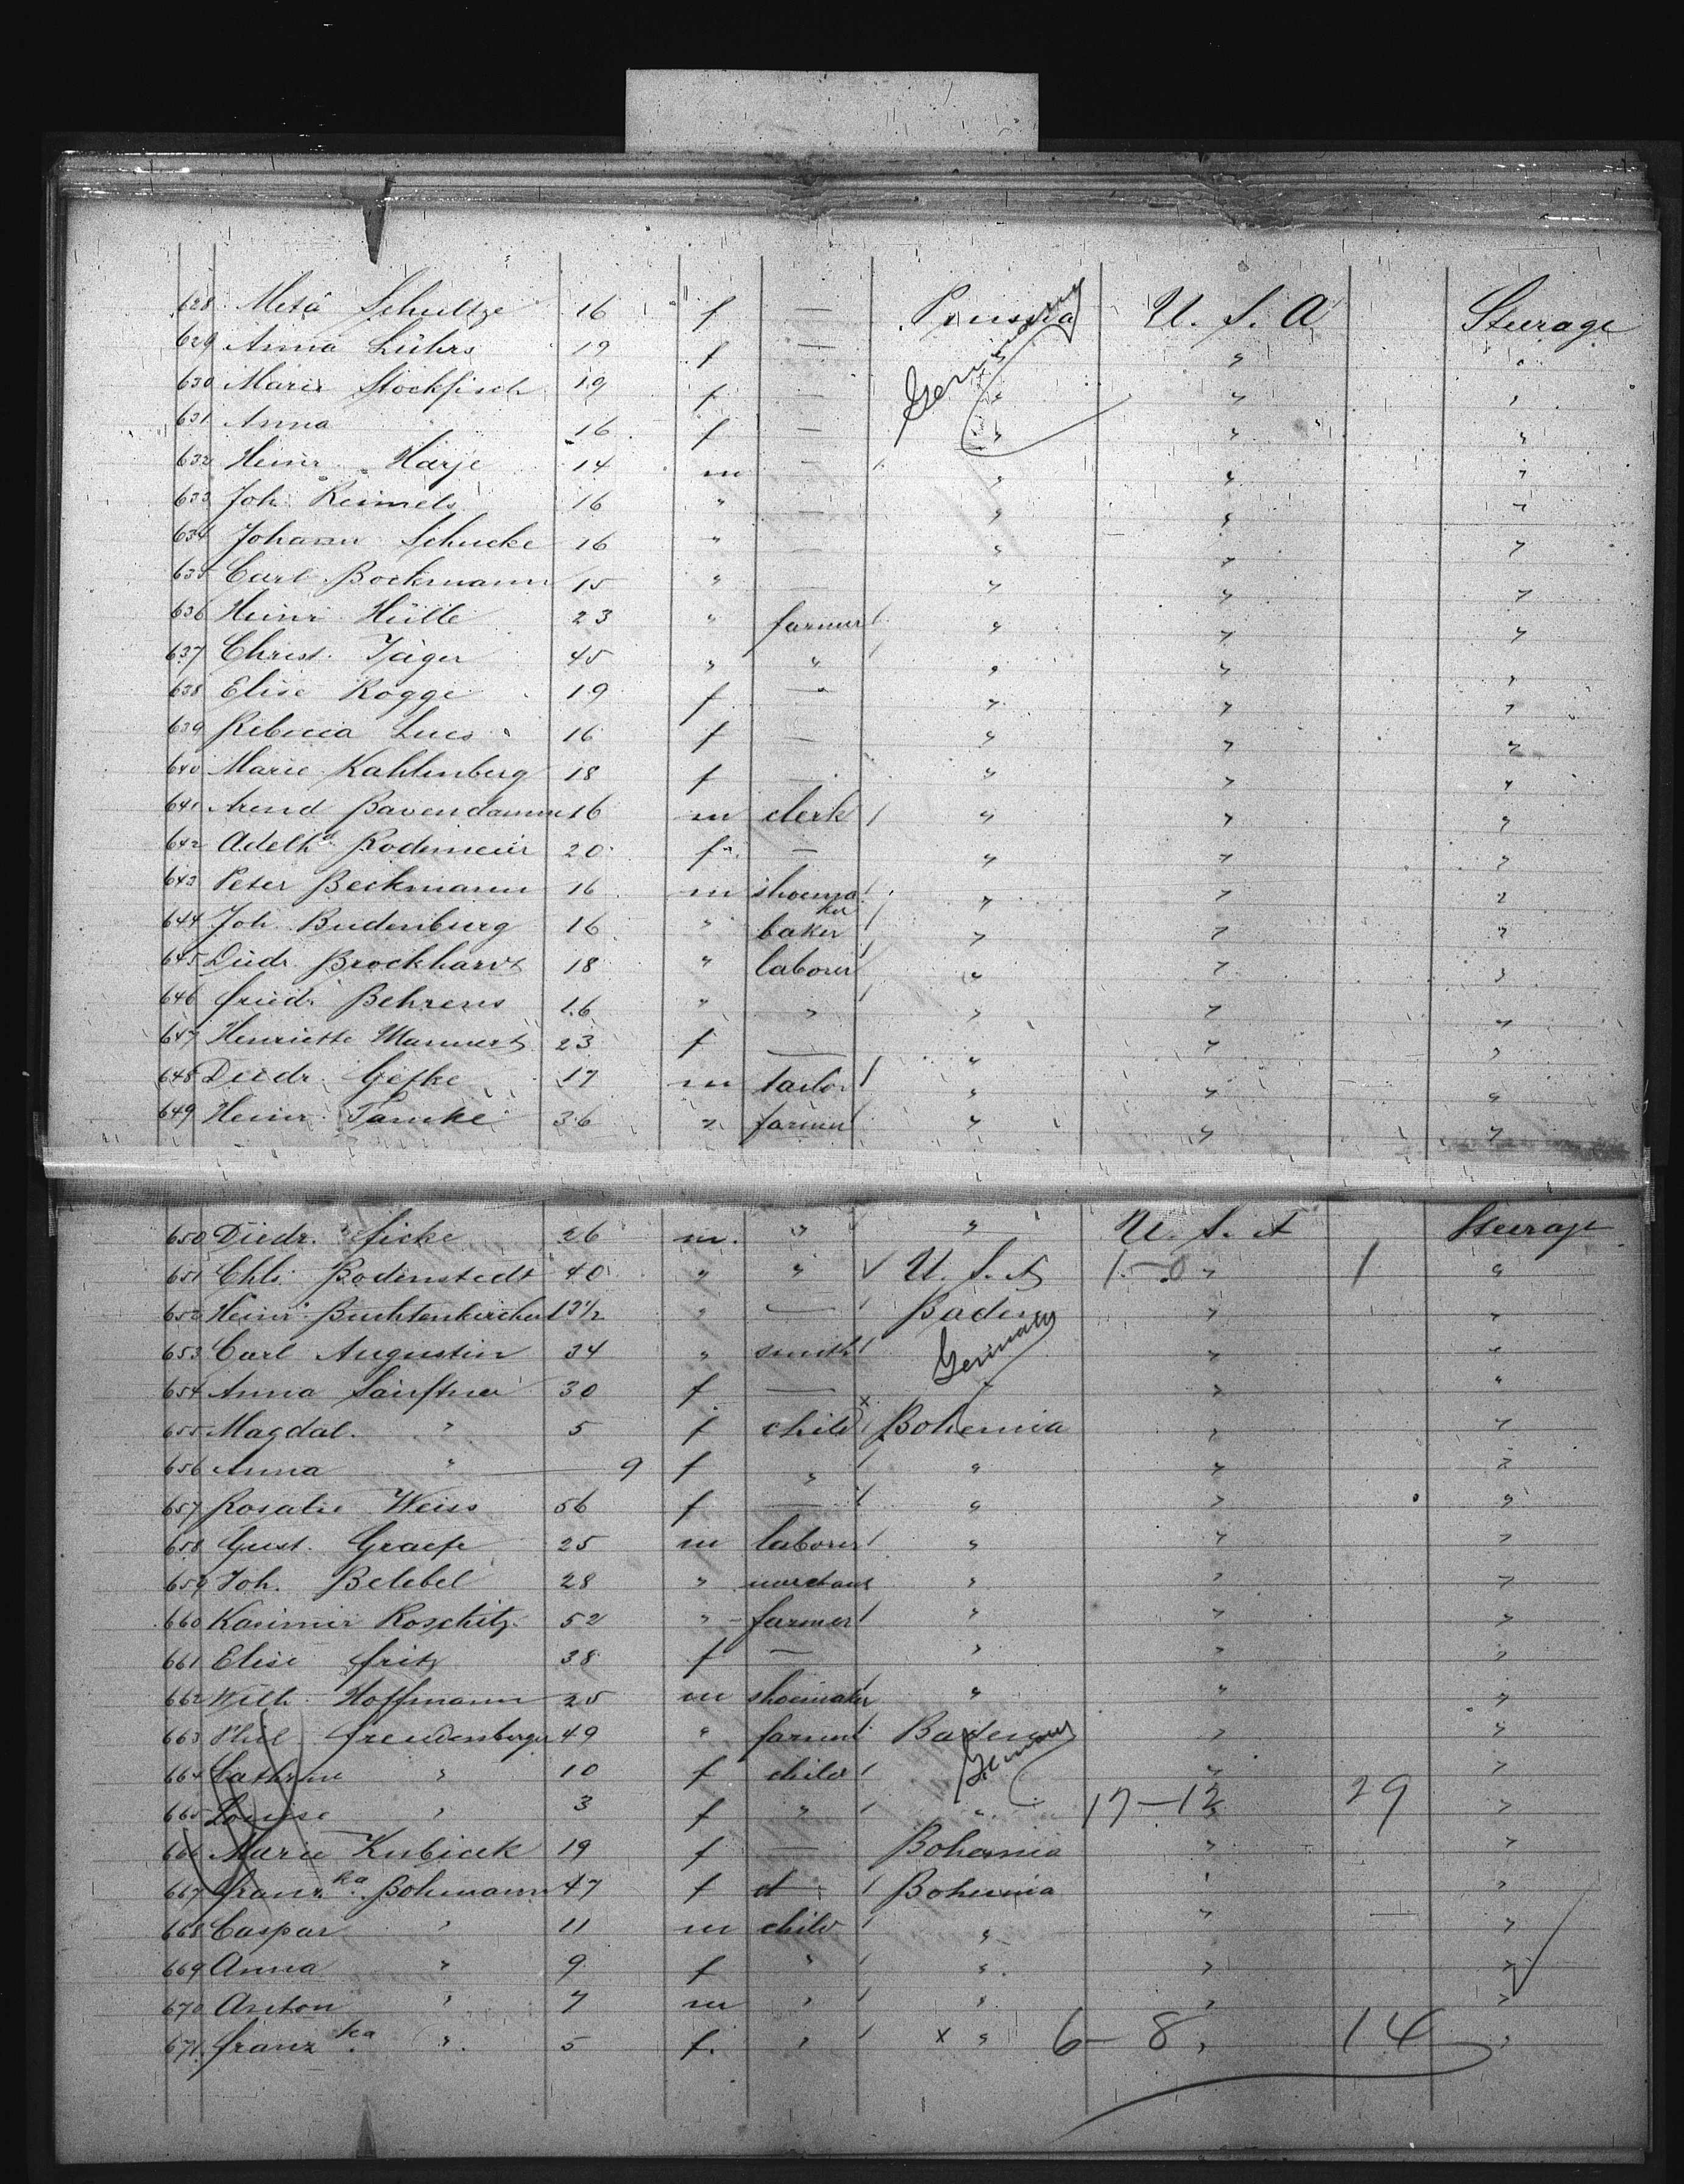 628 Meta Schultze 16 f — Prussia U. S. A Steerage
Germany
629 Anna Lührs 19 f — " " "
630 Marie Stockfisch 19 f — " " "
631 Anna 16 f — " " "
632 Heinr. Harje 14 m — " " "
633 Joh. Reimels 16 " — " " "
634 Johann Schucke 16 " — " " "
635 Carl Bockmann 15 " — " " "
636 Heinr. Hülle 23 " farmer " " "
637 Christ. Jäger 45 " " " " "
638 Elise Rogge 19 f — " " "
639 Rebecca Lues 16 f — " " "
640 Marie Kahlenberg 18 f — " " "
641 Arend Bavendamm 16 m clerk " " "
642 Adelhd Rodemeier 20 f — " " "
643 Peter Beckmann 16 m shoemaker " " "
644 Joh. Budenburg 16 " baker " " "
645 Diedr. Brockhardt 18 " laborer " " "
646 Friedr. Behrens 16 " " " " "
647 Henriette Mannert 23 f — " " "
648 Diedr. Gefke 17 m tailor " " "
649 Heinr. Tamke 36 " farmer " " "
650 Diedr. Ficke 26 m. " " U. S. A Steerage
651 Chls. Bodenstedt 40 " " U. S. A 1-0 " 1 "
652 Heinr. Buchtenkirchen 13 1/2 " — Baden " "
Germany
653 Carl Augustin 34 " smith " "
654 Anna Sänftner 30 f — " "
655 Magdal. " 5 f child x Bohemia " "
656 Anna " — 9 f " " " "
657 Rosalie Weiss 56 f — " " "
658 Gust. Graefe 25 m laborer " " "
659 Joh. Belebel 28 " merchant " " "
660 Kasimir Roschitz 52 " farmer " " "
661 Elise Fritz 38 f — " " "
662 Wilh. Hoffmann 25 m shoemaker " " "
663 Phil Freudenberger 49 " farmer Baden " "
Germany
664 Cathrine " 10 f child " "
665 Louise " 3 f " " 17-12 " 29 "
666 Marie Kubicek 19 f — Bohemia " "
667 Franzka Bohmann 47 f Bohemia " "
668 Caspar " 11 m child " " "
669 Anna " 9 f " " " "
670 Anton " 7 m " " " "
671 Franzka " 5 f. " x " 6-8 " 14 "